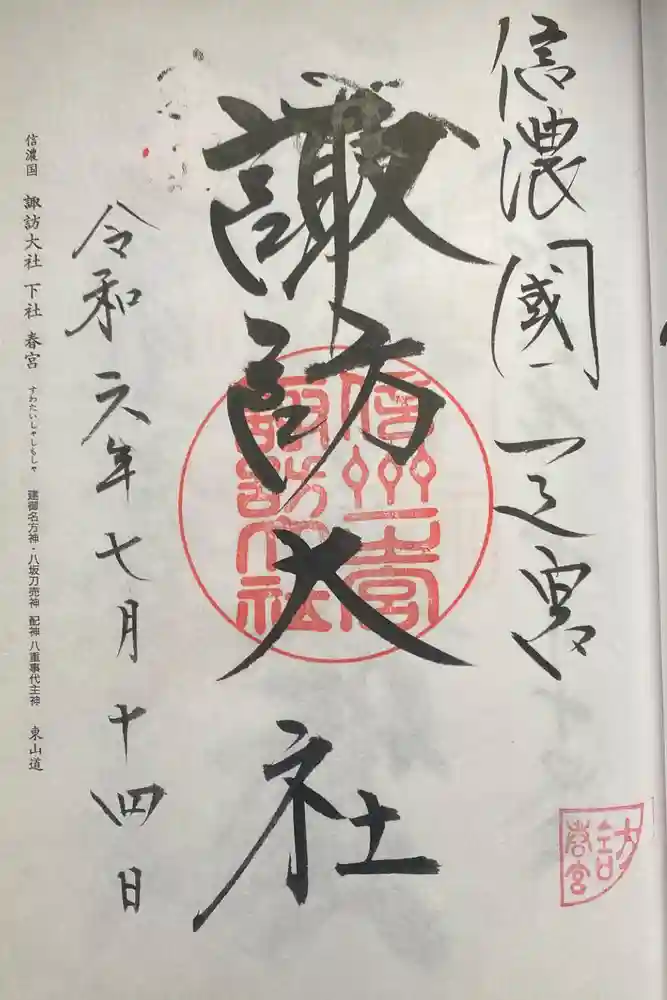 信濃國一之宮
諏訪大社
信州一宮
諏訪大社
令和元年七月十四日
信濃国 諏訪大社 下社 春宮 すわたいしゃしもしゃ 建御名方神・八坂刀売神 配神 八重事代主神 東山道
春宮